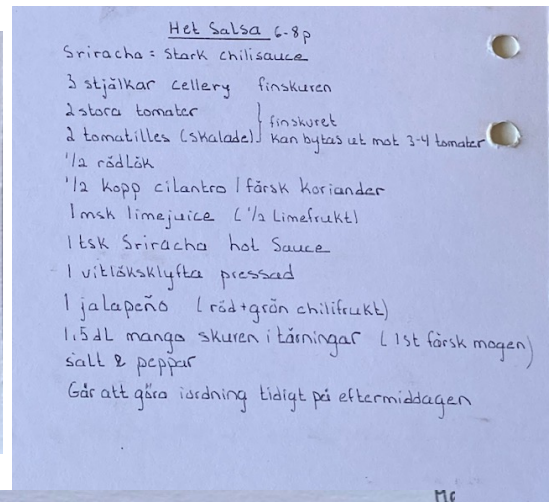 Het Salsa 6-8p
Sriracha = Stark chilisauce
3 stjälkar cellery finskuren
2 stora tomater } finskuret
2 tomatilles (skalade) } kan bytas ut mot 3-4 tomater
1/2 rödlök
1/2 kopp cilantro / färsk koriander
1 msk limejuice (1/2 limefrukt)
1 tsk Sriracha hot Sauce
1 vitlöksklyfta pressad
1 jalapeño (röd+grön chilifrukt)
1,5 dL mango skuren i tärningar (1st färsk mogen)
salt & peppar
Går att göra iordning tidigt på eftermiddagen